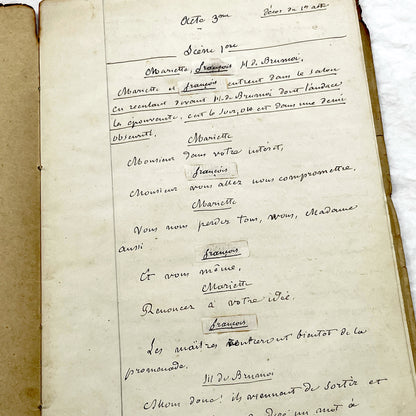 Acte 3me
Décor du 1er acte
Scène 1ere
Mariette, françois M. de Brumoi
Mariette et françois entrent dans le salon
en reculant devant M. de Brumoi dont l'audace
les épouvante, c'est le jour, on est dans une demi
obscurité.
Mariette
Monsieur dans votre intérêt,
françois
Monsieur vous allez nous compromettre,
Mariette
Vous nous perdez tous, vous, Madame
aussi
françois
Et vous même,
Mariette
Renoncez à votre idée.
françois
Les maîtres rentreront bientot de la
promenade.
M. de Brumoi
Allons donc! ils viennent de sortir et
un mot à